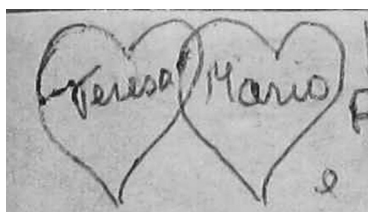 Teresa Mario
e